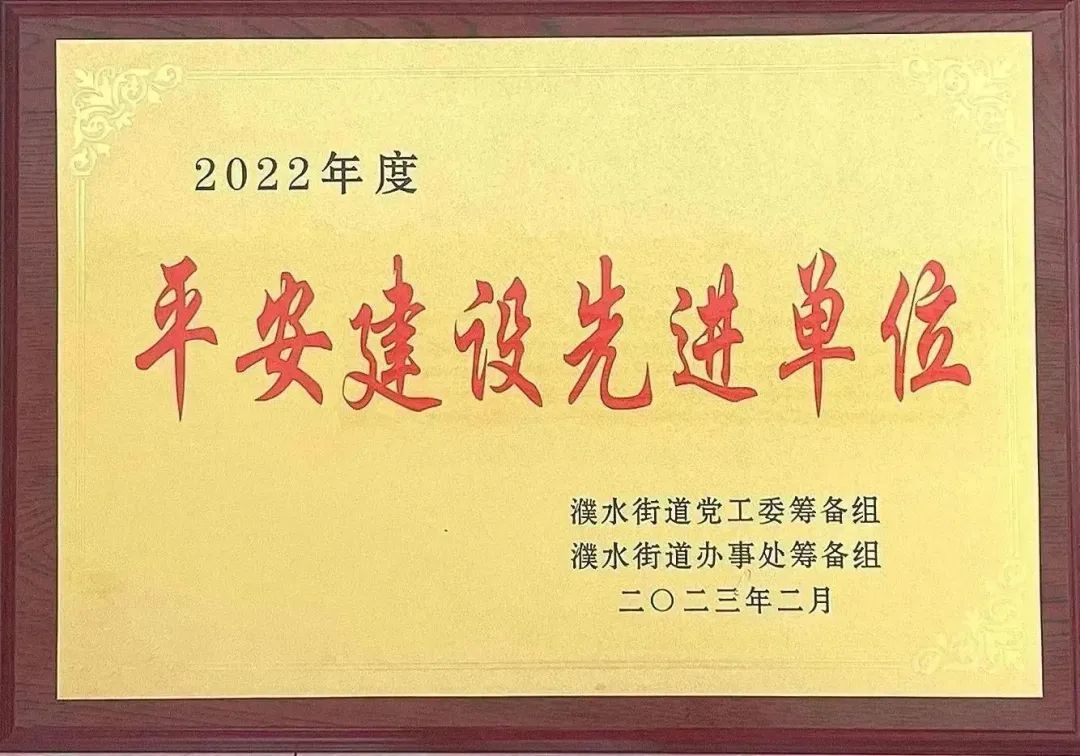 2022年度
平安建设先进单位
濮水街道党工委筹备组
濮水街道办事处筹备组
二〇二三年二月